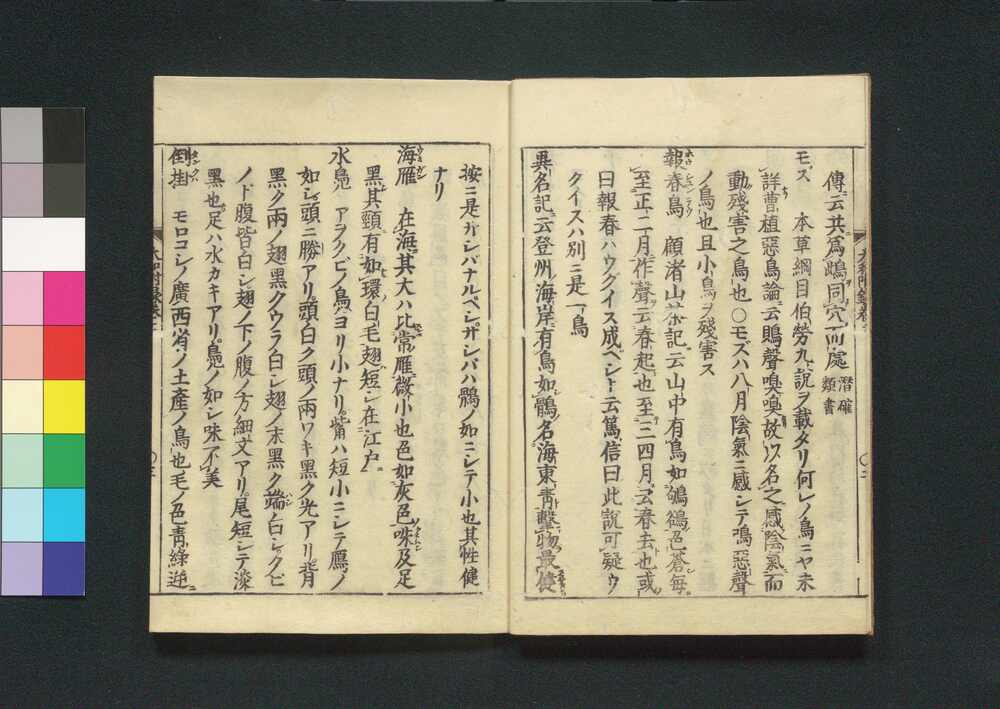 傳云共爲雌同穴而處 潜確類書
モズ 本草綱目伯勞九說ヲ載タリ何レノ鳥ニヤ未
詳曹植惡鳥論云鵙聲嗅嗅故以名之感陰氣而
動殘害之鳥也〇モズハ八月陰氣ニ感シテ鳴惡聲
ノ鳥也且小鳥ヲ殘害ス
報春鳥 顧渚山茶記云山中有鳥如鴝鵒色蒼每
至正二月作聲云春起也至三四月云春去也或
曰報春ハウグイス成ベシト云篤信曰此說可疑ウ
クイスハ別ニ是一鳥
異名記云登州海岸有鳥如鶻名海東靑擊物最健
按ニ是ハシバナルベシサシバハ鶻ノ如ニシテ小也其性健
ナリ
海雁 在海其大ハ比常雁微小也色如灰色咮及足
黑其頸有如環白毛翅短シ在江戸
水鳧 アヲクビノ鳥ヨリ小ナリ觜ハ短小ニシテ鷹ノ
如シ頭ニ勝アリ頭白ク頭ノ兩ワキ黑ク光アリ背
黑ク兩ノ翅黑クウラ白シ翅ノ末黑ク端白シクビ
ノト腹皆白シ翅ノ下ノ腹ノ方細文アリ尾短シテ漆
黑也足ハ水カキアリ鳧ノ如シ味不美
倒掛 モロコシノ廣西省ノ土產ノ鳥也毛ノ色靑綠逆